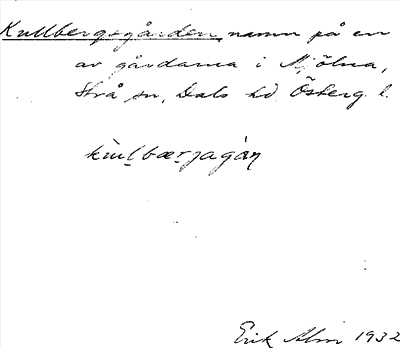 Kullbergsgården, namn på en
av gårdarna i Mjölna,
Strå sn, Dals hd Österg. l.
Erik Alm 1932